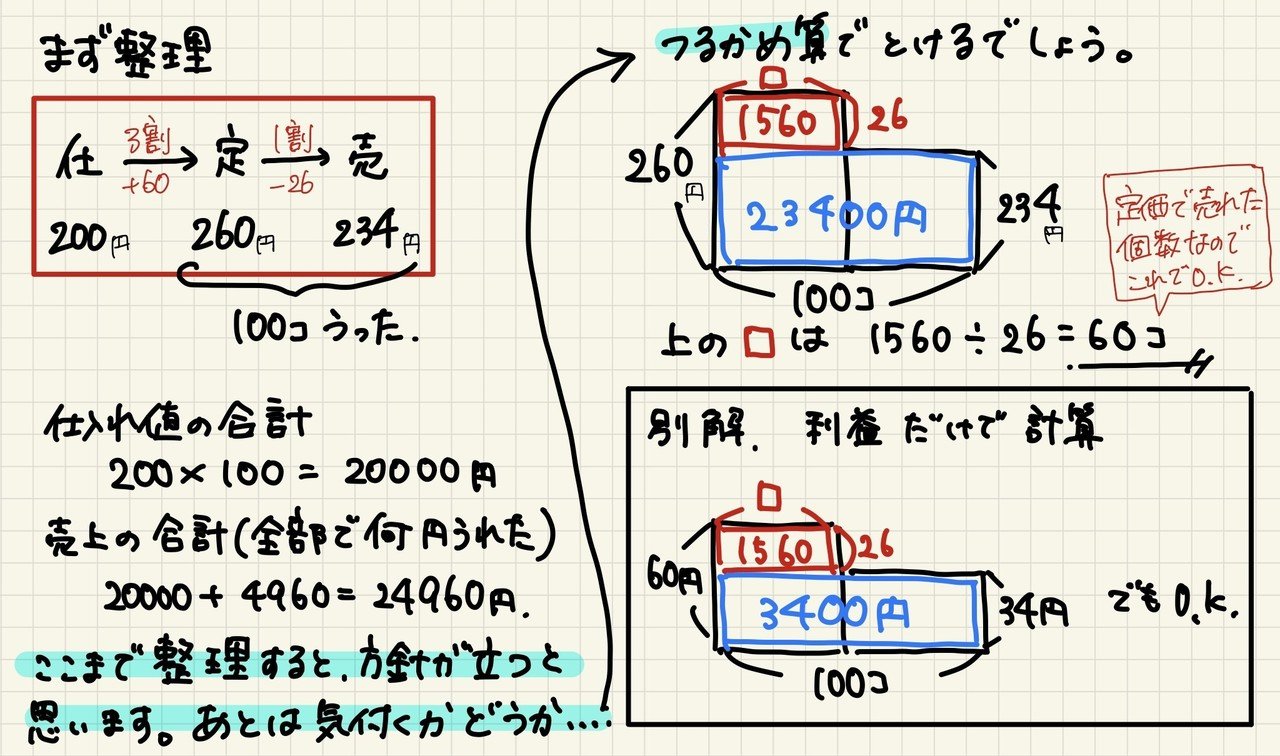 まず整理
仕 3割 +60 定 1割 -26 売
200円 260円 234円
100コ うった.
仕入れ値の合計
200×100=20000円
売上の合計(全部で何円うれた)
20000+4960=24960円.
ここまで整理すると、方針が立つと
思います。あとは気付くかどうか‥‥
つるかめ算でとけるでしょう。
□
1560 26
260円
23400円
234円
100コ
定価で売れた
個数なので
これでO.K.
上の□は 1560÷26=60コ
別解. 利益だけで計算
□
1560 26
60円
3400円
34円
でもO.K.
100コ